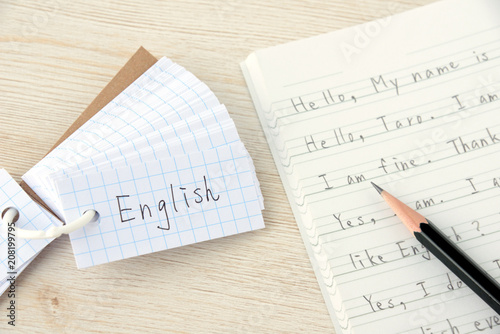 English
Hello, My name is
Hello, Taro. I am
I am fine. Thank
Yes, I am. I a
like English?
Yes, I do.
English eve
208199795